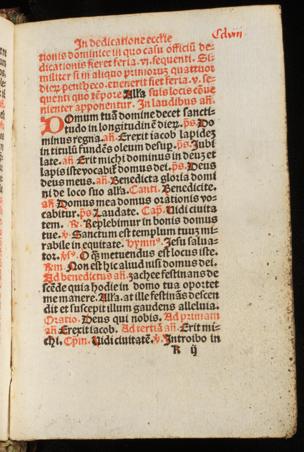 In dedicatione ecclie
Cclviii
tionis dominice in quo casu officiū de-
dicationis fiet feria .vi. sequenti. Si-
militer si in aliquo primorum quattuor
dierꝫ penthecos. euenerit fiet feria .v. se-
quenti quo tempore Alla suis locis conue-
nienter apponentur. In laudibus añ.
Domum tuā domine decet sancti-
tudo in longitudinē dierꝫ. ps. Do
minus regna. añ. Erexit iacob lapidez
in titulū fundēs oleum desup. ps. Jubi
late. añ. Erit michi dominus in deuz et
lapis iste vocabit domus dei. ps. Deus
deus meus. añ. Benedicta gloria domi
ni de loco suo alla. Canti. Benedicite.
añ Domus mea domus orationis vo-
cabitur. ps. Laudate. Cap. Uidi ciuita
tem. ꝶ. Replebimur in bonis domus
tue. ꝟ. Sanctum est templum tuuz mi-
rabile in equitate. hymn⁹. Jesu salua-
tor. O q̄ metuendus est locus iste.
Non est hic aliud nisi domus dei.
Ad benedictus añ. zachee festinans de-
scēde quia hodie in domo tua oportet
me manere. Alla. at ille festinās descen
dit et suscepit illum gaudens alleluia.
Oratio. Deus qui nobis. Ad primam
añ Erexit iacob. Ad tertiā añ. Erit mi-
chi. Cpm. Uidi ciuitatē. ꝟ. Introibo in
R ij